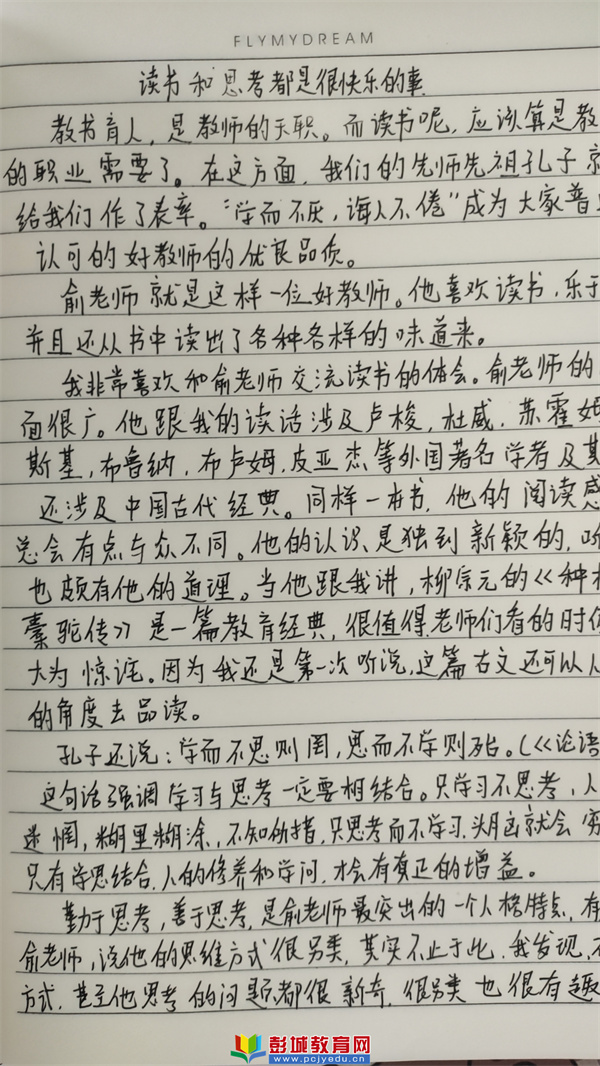 FLYMYDREAM
读书和思考都是很快乐的事
教书育人,是教师的天职。而读书呢,应该算是教
的职业需要了。在这方面,我们的先师先祖孔子就
给我们作了表率。“学而不厌,诲人不倦”成为大家普
认可的好教师的优良品质。
俞老师就是这样一位好教师。他喜欢读书,乐于
并且还从书中读出了各种各样的味道来。
我非常喜欢和俞老师交流读书的体会。俞老师的
面很广。他跟我的谈话涉及卢梭,杜威,苏霍姆
斯基,布鲁纳,布卢姆,皮亚杰等外国著名学者及其
还涉及中国古代经典。同样一本书,他的阅读感
总会有点与众不同。他的认识是独到新颖的,听
也颇有他的道理。当他跟我讲,柳宗元的《种树
橐驼传》是一篇教育经典,很值得老师们看的时候
大为惊诧。因为我还是第一次听说,这篇古文还可以从
的角度去品读。
孔子还说:学而不思则罔,思而不学则殆。(《论语
这句话强调学习与思考一定要相结合。只学习不思考,人
迷惘,糊里糊涂,不知所措,只思考而不学习,头脑就会穷
只有学思结合,人的修养和学问,才会有真正的增益。
勤于思考,善于思考,是俞老师最突出的一个人格特点,有
俞老师,说他的思维方式很另类,其实不止于此,我发现,不
方式,甚至他思考的问题,都很新奇,很另类也很有趣
彭城教育网
www.pcjyedu.cn